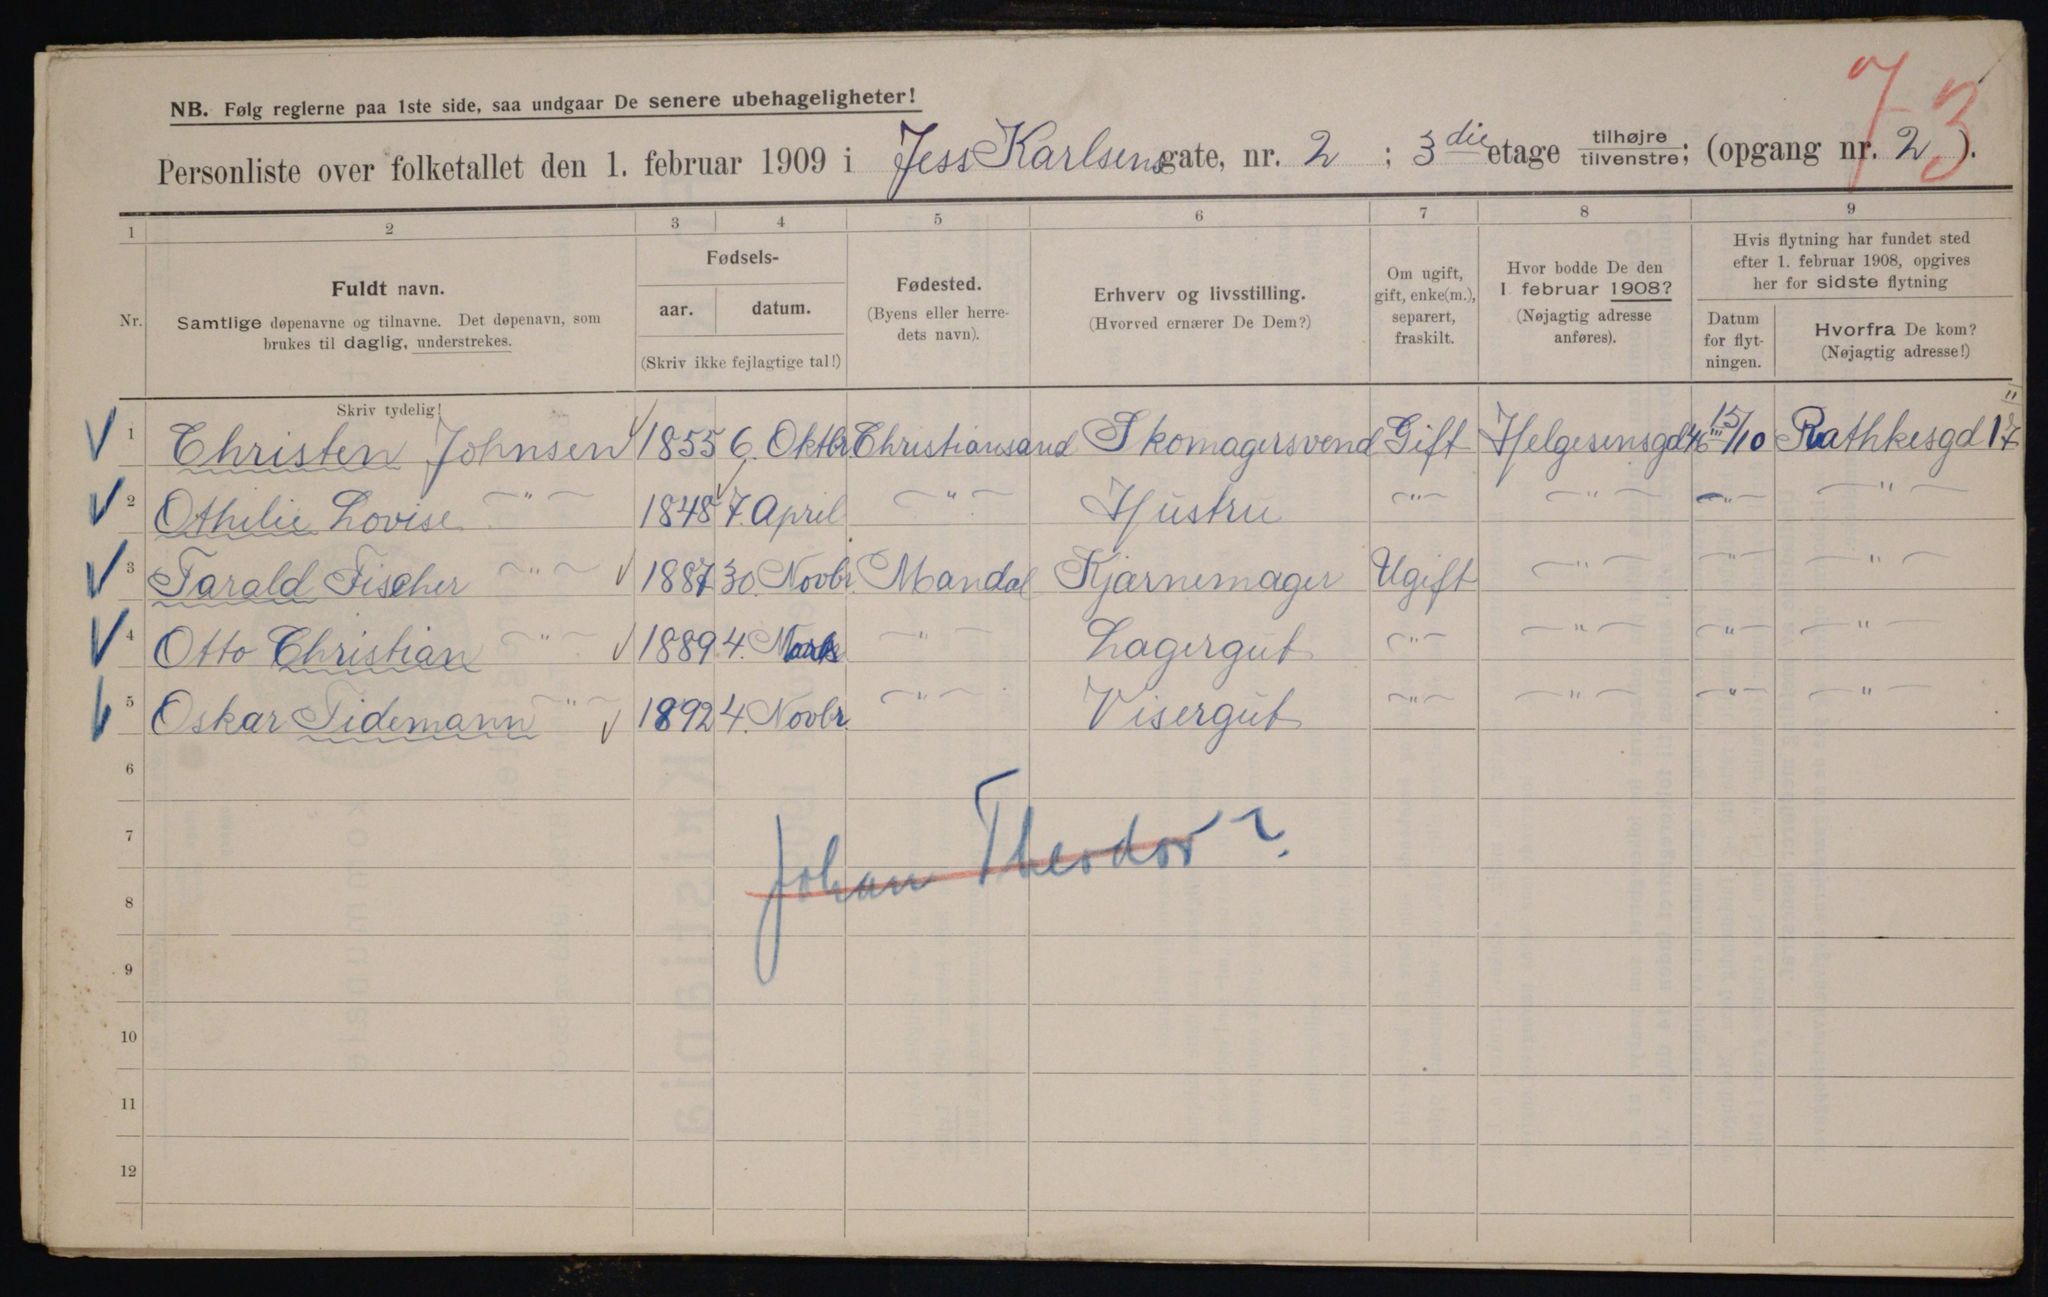 73
NB. Følg reglerne paa 1ste side, saa undgaar De senere ubehageligheter!
Personliste over folketallet den 1. februar 1909 i Jess Karlsens gate, nr. 2 ; 3 die etage tilhøjre tilvenstre; (opgang nr. 2 ).
1 2 3 4 5 6 7 8 9
Nr. Fuldt navn. Samtlige døpenavne og tilnavne. Det døpenavn, som brukes til daglig, understrekes.
Fødsels- aar. datum. (Skriv ikke fejlagtige tal!)
Fødested. (Byens eller herredets navn).
Erhverv og livsstilling. (Hvorved ernærer De Dem?)
Om ugift, gift, enke(m.), separert, fraskilt.
Hvor bodde De den 1 februar 1908? (Nøjagtig adresse anføres).
Hvis flytning har fundet sted efter 1. februar 1908, opgives her for sidste flytning
Datum for flytningen. Hvorfra De kom? (Nøjagtig adresse!)
Skriv tydelig!
1 Christen Johnsen 1855 6. Oktbr Christiansand Skomagersvend Gift Helgesensgd 46 III 15/10 Rathkesgd 17 II
2 Othilie Lovise " 1848 7. April " Hustru " " " "
3 Tarald Fischer " 1887 30. Novbr. Mandal Kjærnemager Ugift " " "
4 Otto Christian " 1889 4. " Lagergut " " " "
5 Oskar Tidemann " 1892 4. Novbr. " Visergut " " " "
6
7
Johan Theodor ?
8
9
10
11
12